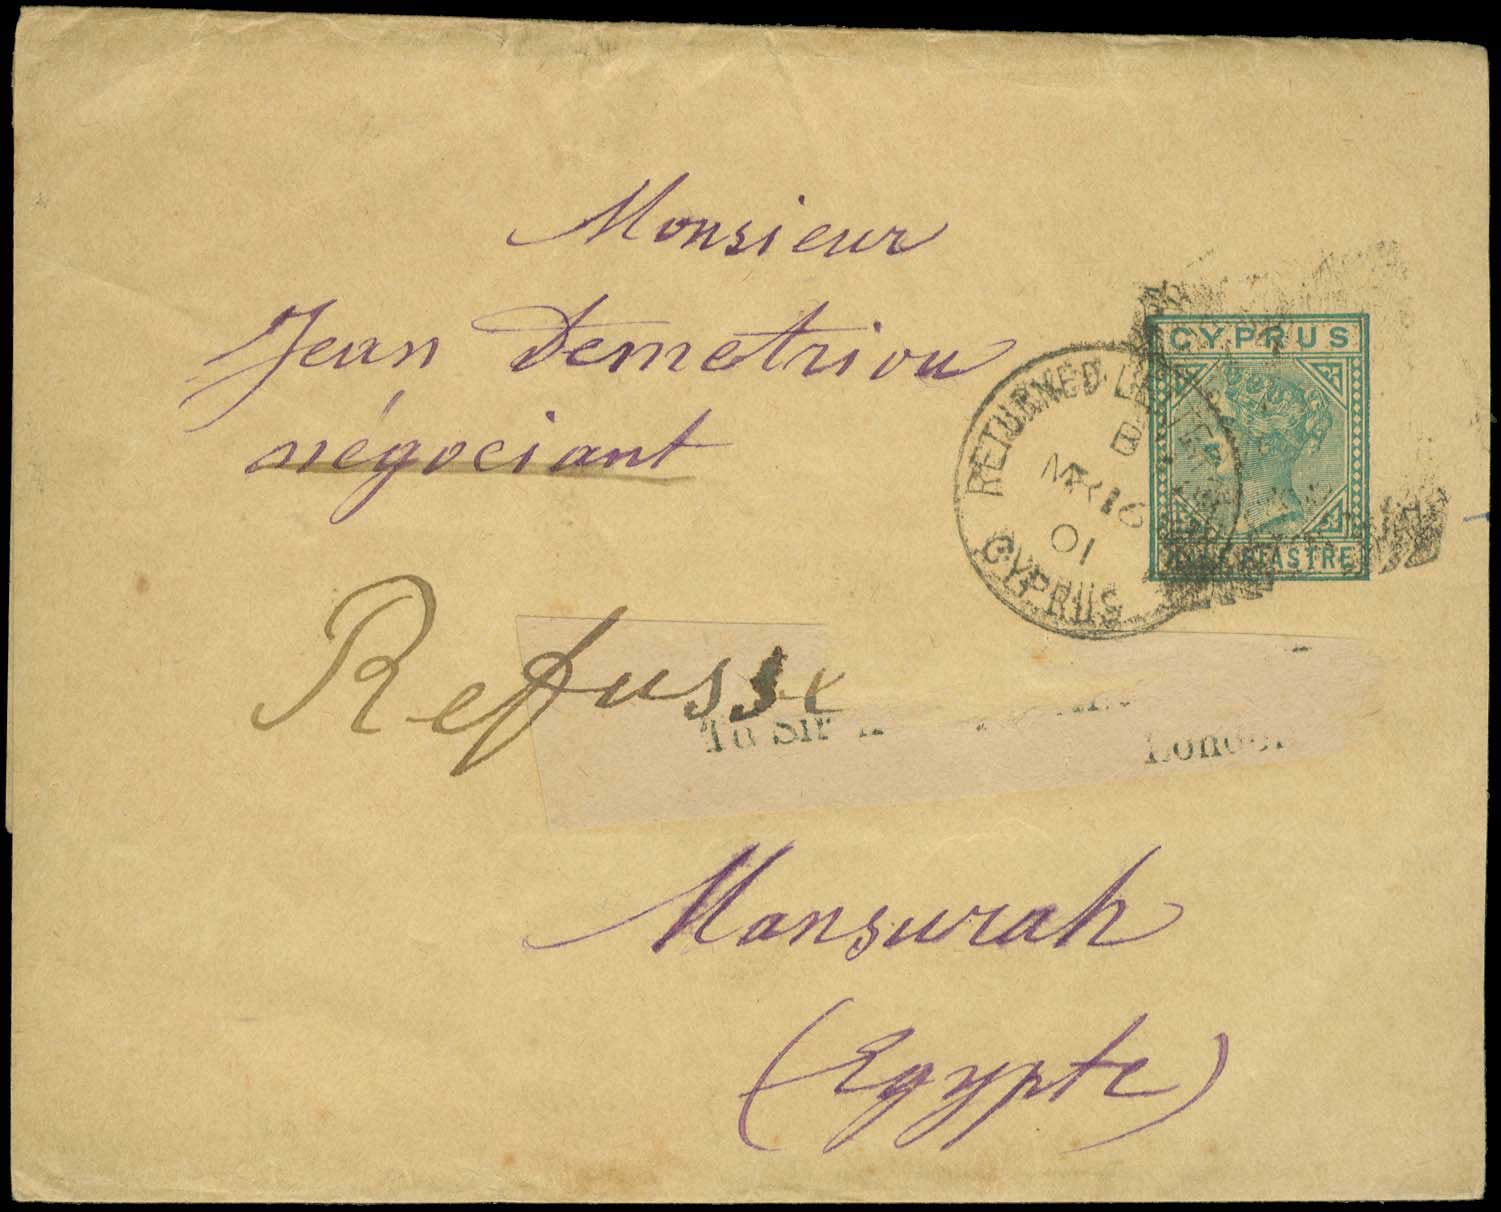 Monsieur
Jean Demetriou
négociant
CYPRUS
PIASTRE
RETURNED
B
MR 16
01
CYPRUS
Refusse
To Sir
London
Mansurah
(Egypte)